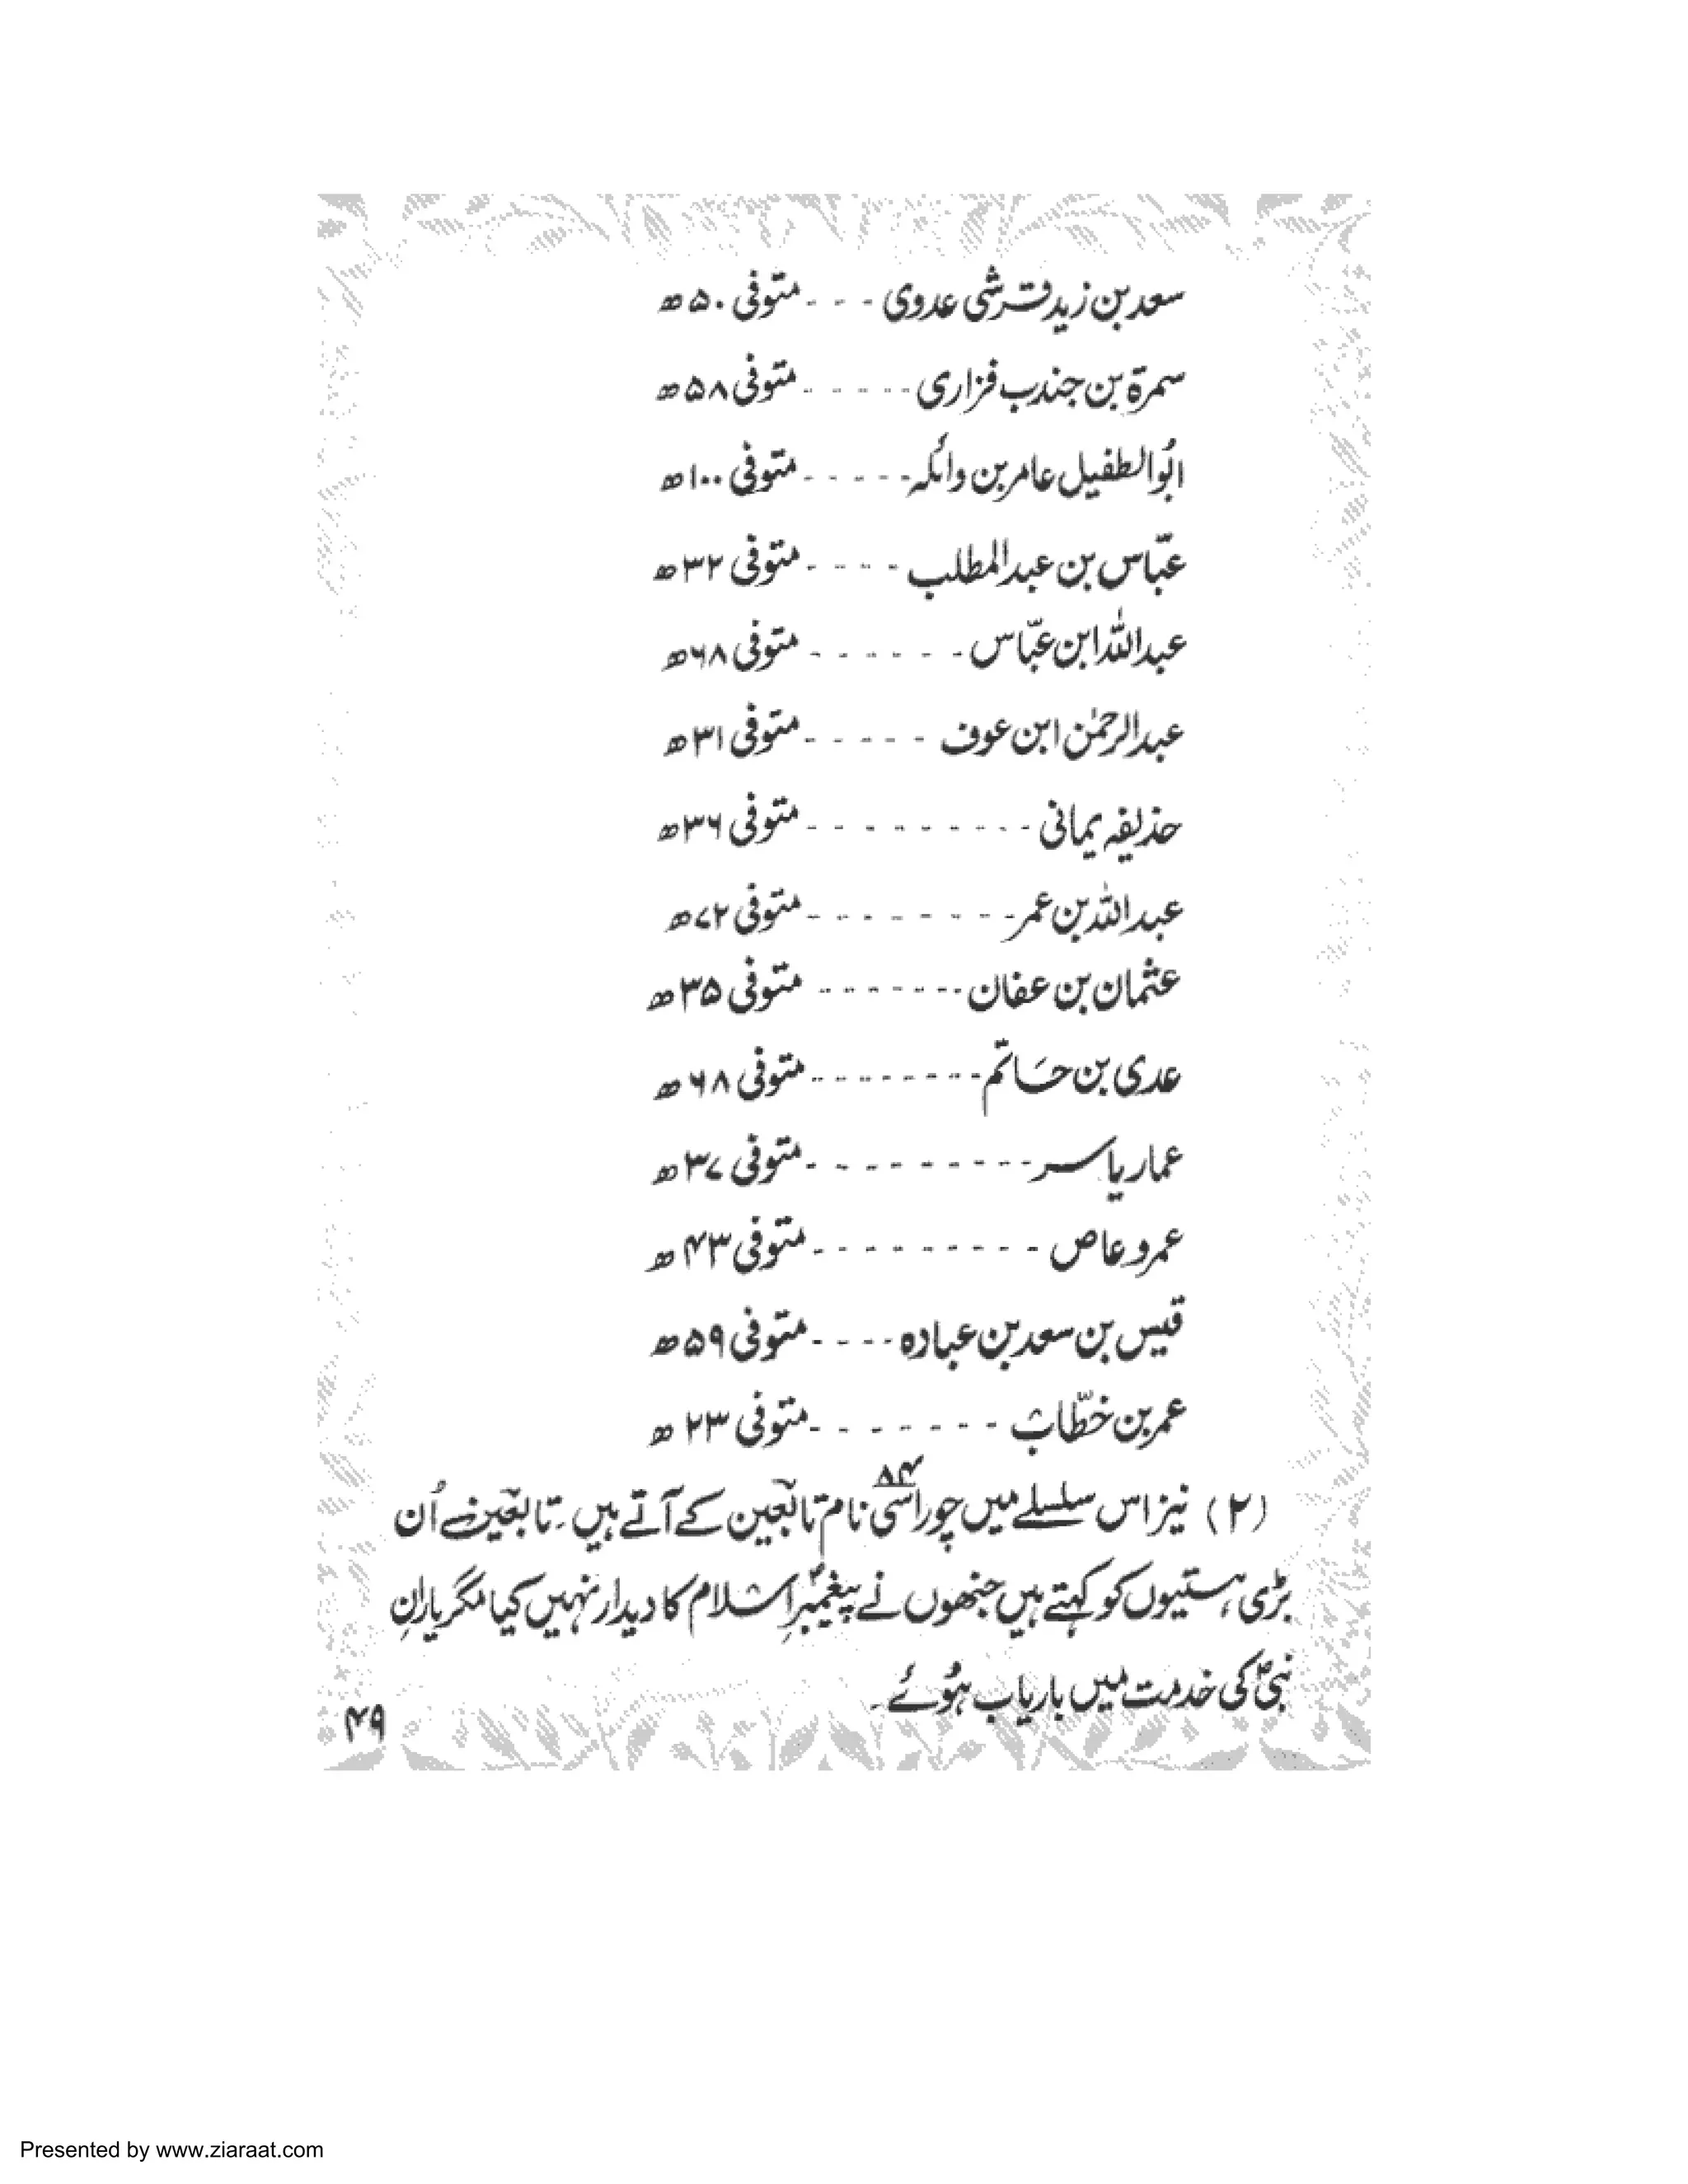 سعد بن زید قرشی عدوی - - - متوفی ۵۰ھ
سمرۃ بن جندب فزاری - - - - - متوفی ۵۸ھ
ابُوالطفیل عامر بن وائلہ - - - - - متوفی ۱۰۰ھ
عبّاس بن عبدالمطلب - - - - متوفی ۳۲ھ
عبداللہ ابن عبّاس - - - - - - متوفی ۶۸ھ
عبدالرحمٰن ابن عوف - - - - - متوفی ۳۱ھ
حذیفہ یمانی - - - - - - - - متوفی ۳۶ھ
عبداللہ بن عمر - - - - - - - - متوفی ۷۲ھ
عثمان بن عفان - - - - - - - متوفی ۳۵ھ
عدی بن حاتم - - - - - - - - متوفی ۶۸ھ
عمار یاسر - - - - - - - - - متوفی ۳۷ھ
عمرو عاص - - - - - - - - - متوفی ۴۳ھ
قیس بن سعد بن عبادہ - - - - متوفی ۵۹ھ
عمر بن خطّاب - - - - - - - متوفی ۲۳ھ
(۲) نیز اس سلسلے میں چوراسّی ۸۴ نام تابعین کے آتے ہیں۔ تابعین اُن
بڑی ہستیوں کو کہتے ہیں جنھوں نے پیغمبرِ اسلام کا دیدار نہیں کیا مگر یارانِ
نبیؐ کی خدمت میں باریاب ہُوئے۔
۴۹
Presented by www.ziaraat.com